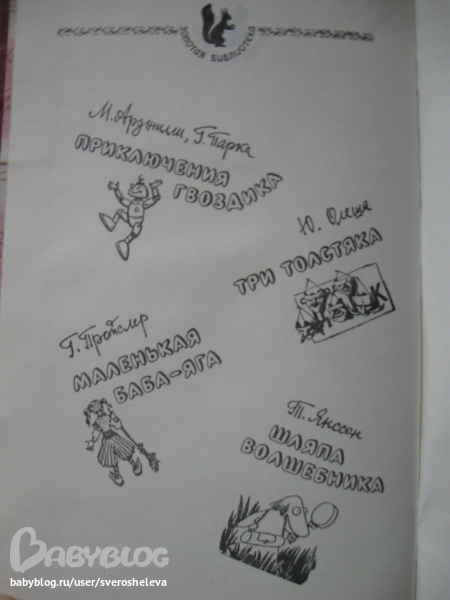 ЗОЛОТАЯ БИБЛИОТЕКА
М. Арджилли, Г. Парка
ПРИКЛЮЧЕНИЯ
ГВОЗДИКА
Ю. Олеша
ТРИ ТОЛСТЯКА
Г. Пройслер
МАЛЕНЬКАЯ
БАБА-ЯГА
Т. Янссон
ШЛЯПА
ВОЛШЕБНИКА
BABYBLOG
babyblog.ru/user/sverosheleva